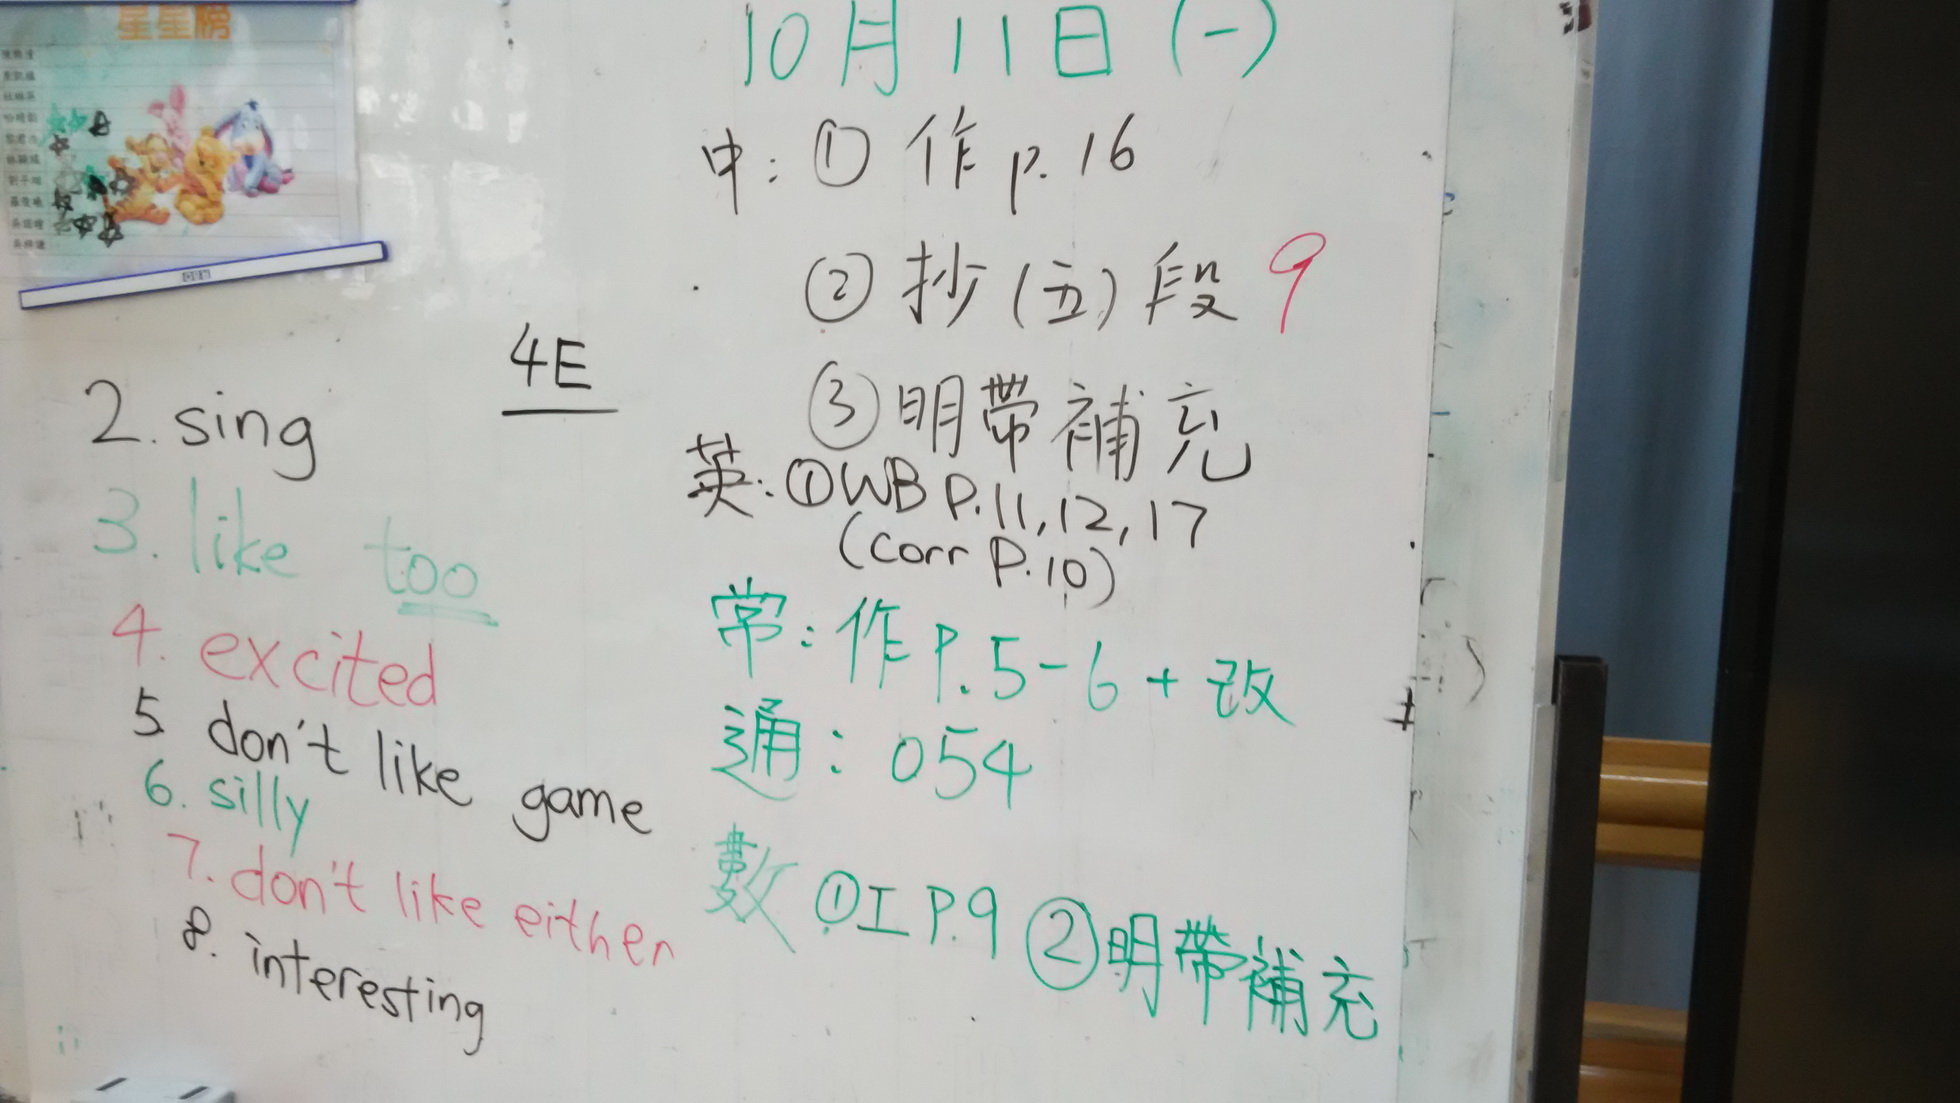 星星榜
4E
2. sing
3. like too
4. excited
5 don't like game
6. silly
7. don't like either
8. interesting
10月11日(一)
中: ① 作 p. 16
② 抄(五)段 9
③ 明帶補充
英: ① WB P.11, 12, 17
(corr P.10)
常: 作 P. 5-6 + 改
通: 054
數 ① 工 P.9 ② 明帶補充